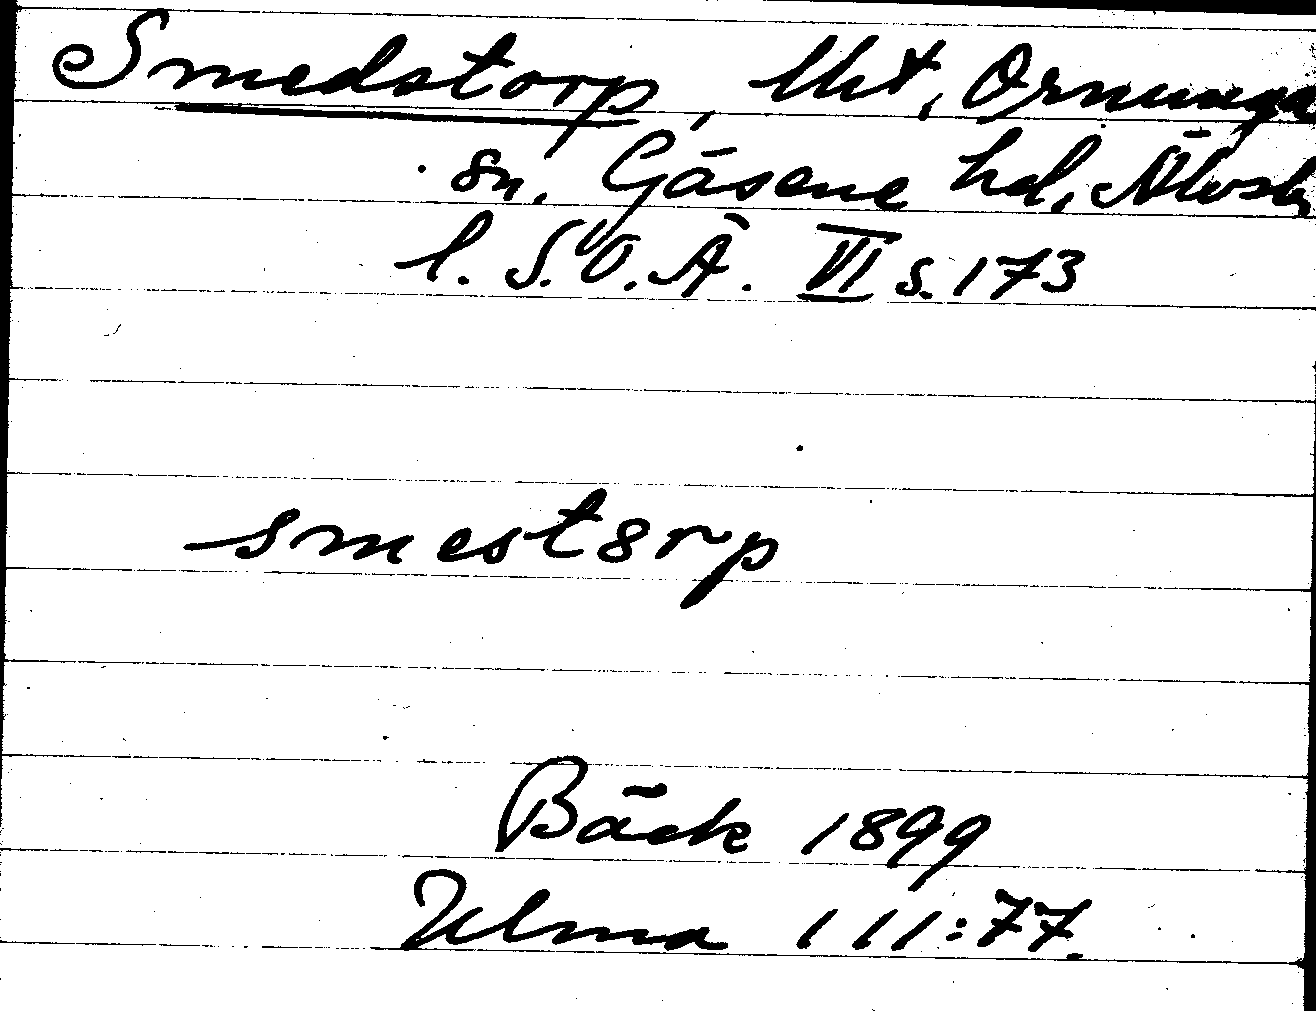 Smedstorp, Uht, Ornunga
sn, Gäsene hd, Älvsb
l. S.O.Ä. VI s. 173
smestorp
Bäck 1899
Ulma 111:77.